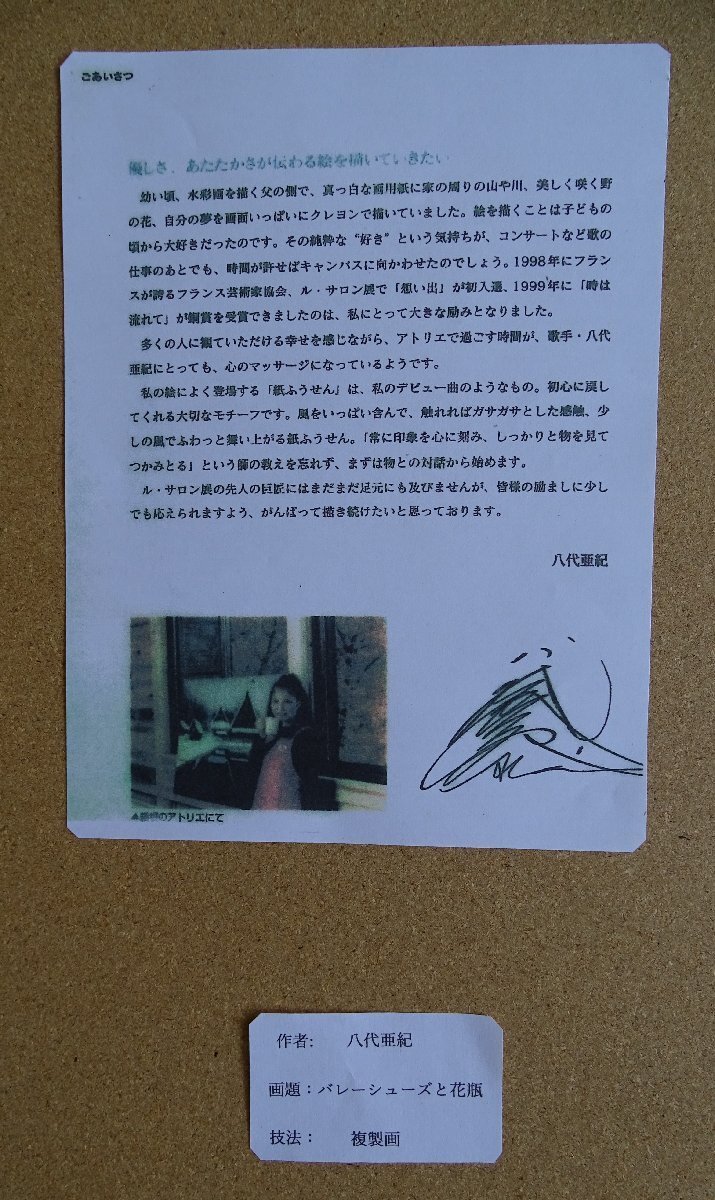 ごあいさつ
優しさ、あたたかさが伝わる絵を描いていきたい
幼い頃、水彩画を描く父の側で、真っ白な画用紙に家の周りの山や川、美しく咲く野
の花、自分の夢を画面いっぱいにクレヨンで描いていました。絵を描くことは子どもの
頃から大好きだったのです。その純粋な“好き”という気持ちが、コンサートなど歌の
仕事のあとでも、時間が許せばキャンバスに向かわせたのでしょう。1998年にフラン
スが誇るフランス芸術家協会、ル・サロン展で「想い出」が初入選、1999年に「時は
流れて」が銅賞を受賞できましたのは、私にとって大きな励みとなりました。
多くの人に観ていただける幸せを感じながら、アトリエで過ごす時間が、歌手・八代
亜紀にとっても、心のマッサージになっているようです。
私の絵によく登場する「紙ふうせん」は、私のデビュー曲のようなもの。初心に戻し
てくれる大切なモチーフです。風をいっぱい含んで、触れればガサガサとした感触、少
しの風でふわっと舞い上がる紙ふうせん。「常に印象を心に刻み、しっかりと物を見て
つかみとる」という師の教えを忘れず、まずは物との対話から始めます。
ル・サロン展の先人の巨匠にはまだまだ足元にも及びませんが、皆様の励ましに少し
でも応えられますよう、がんばって描き続けたいと思っております。
八代亜紀
のアトリエにて
作者: 八代亜紀
画題：バレーシューズと花瓶
技法： 複製画